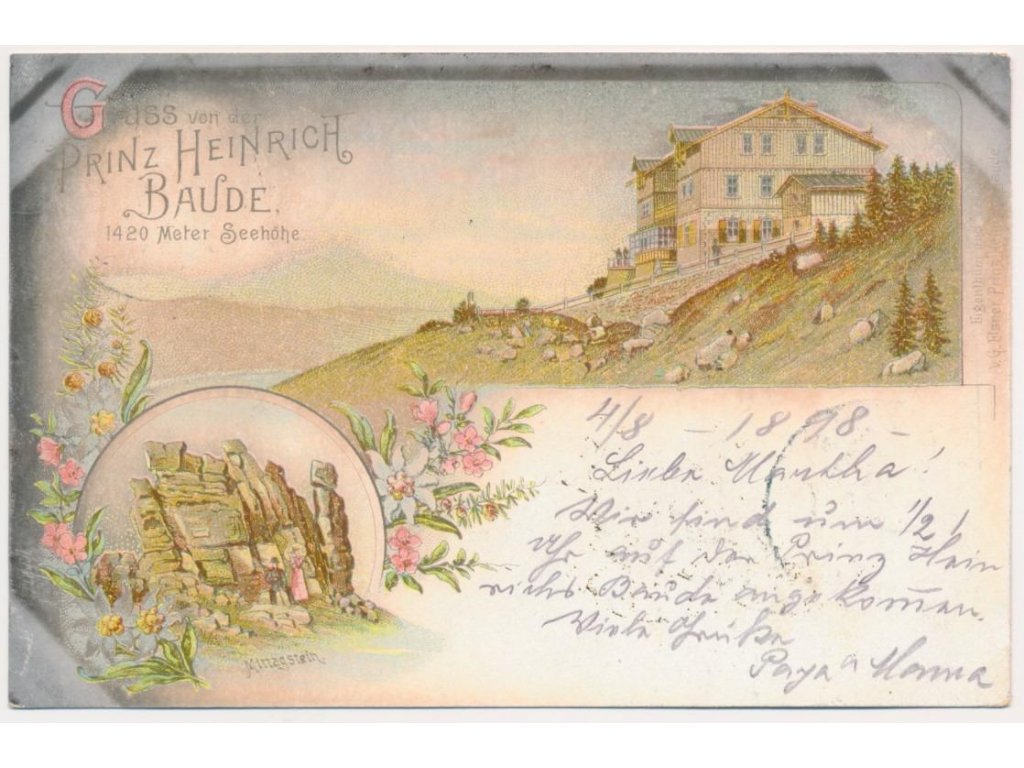 Gruss von der
PRINZ HEINRICH
BAUDE.
1420 Meter Seehöhe.
Eigenthum
v. G. Elsner
4/8 – 1898 –
Liebe Martha!
Wir sind um 1/2 1
Uhr auf der Prinz Hein
richs Baude angekomen.
Viele Grüße
Papa u Mama
Mittagstein